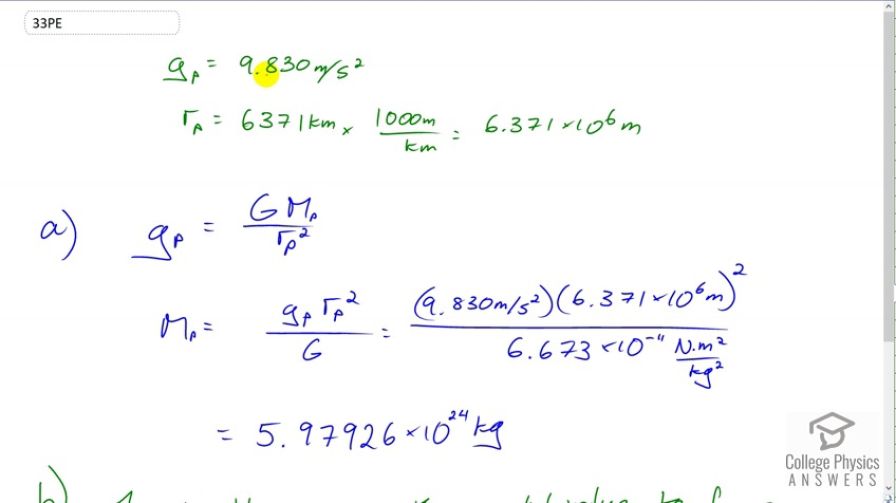 33PE
g_P = 9.830 m/s²
r_P = 6371 km × 1000m/km = 6.371 × 10⁶ m
a) g_P = G M_P / r_P²
M_P = g_P r_P² / G = (9.830 m/s²)(6.371 × 10⁶ m)² / 6.673 × 10⁻¹¹ N·m²/kg²
= 5.97926 × 10²⁴ kg
b)
College Physics
ANSWERS